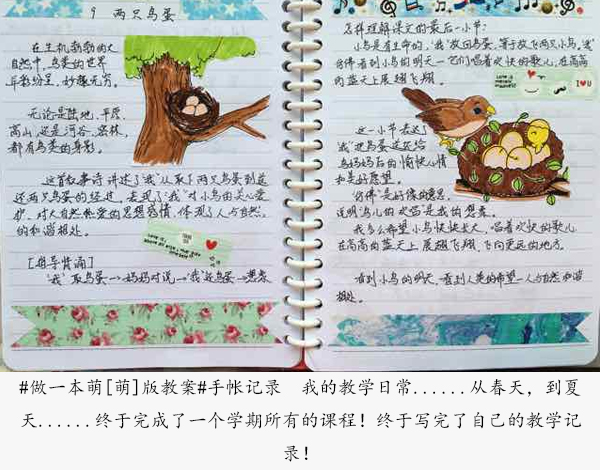 9 两只鸟蛋
在生机勃勃的大
自然中，鸟类的世界
异彩纷呈，妙趣无穷。
无论是陆地、平原、
高山，还是河谷、密林，
都有鸟类的身影。
这首叙事诗讲述了“我”从取下两只鸟蛋到送
还两只鸟蛋的经过，表现了“我”对小鸟的关心爱
护，对大自然热爱的思想感情，体现了人与自然
的和谐相处。
[指导背诵]
“我”取鸟蛋→妈妈对说→“我”送鸟蛋→想象
怎样理解课文的最后一小节：
小鸟是有生命的，“我”放回鸟蛋，等于放飞两只小鸟，“我”
仿佛看到小鸟的明天—它们唱着欢快的歌儿，在高高
的蓝天上展翅飞翔。
这一小节表达了
“我”把鸟蛋送还给
鸟妈妈后的愉快心情
和美好愿望。
“仿佛”是好像的意思，
说明“鸟儿的欢唱”是我的想象。
我多么希望小鸟快快长大，唱着欢快的歌儿
在高高的蓝天上展翅飞翔，飞向更远的地方。
看到小鸟的明天，看到人类的希望—人与自然和谐
相处。
I ♥ U
#做一本萌[萌]版教案#手帐记录 我的教学日常......从春天，到夏
天......终于完成了一个学期所有的课程！终于写完了自己的教学记
录！